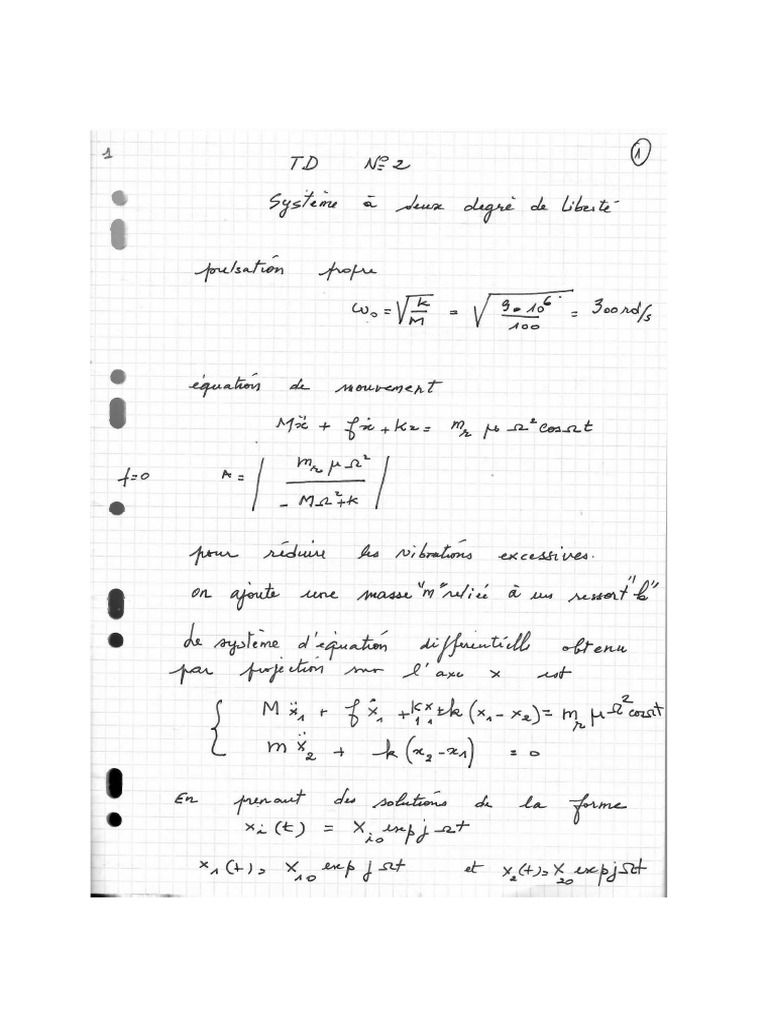 1
①
T.D N°2
Système à deux degré de liberté
pulsation propre
ω₀ = √(K/M) = √(9·10⁶/100) = 300 rd/s
équation de mouvement
Mẍ + fẋ + Kx = m_r μ Ω² cosΩt
f=0 A = | m_r μ Ω² / (-MΩ²+K) |
pour réduire les vibrations excessives.
on ajoute une masse "m" reliée à un ressort "k"
Le système d'équation différentielle obtenu
par projection sur l'axe x est
{ M ẍ₁ + f ẋ₁ + K₁x₁ + k(x₁ - x₂) = m_r μ Ω² cosΩt
m ẍ₂ + k(x₂ - x₁) = 0
En prenant des solutions de la forme
xi(t) = X_i0 exp jΩt
x₁(t) = X₁₀ exp jΩt et x₂(t) = X₂₀ exp jΩt